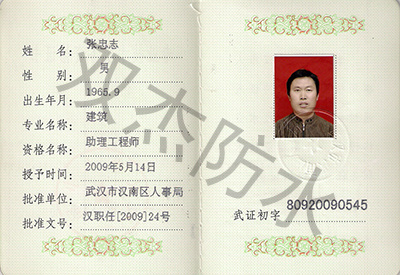 姓名: 张忠志
性别: 男
出生年月: 1965.9
专业名称: 建筑
资格名称: 助理工程师
授予时间: 2009年5月14日
批准单位: 武汉市汉南区人事局
批准文号: 汉职任[2009]24号
武证初字 80920090545
双杰防水